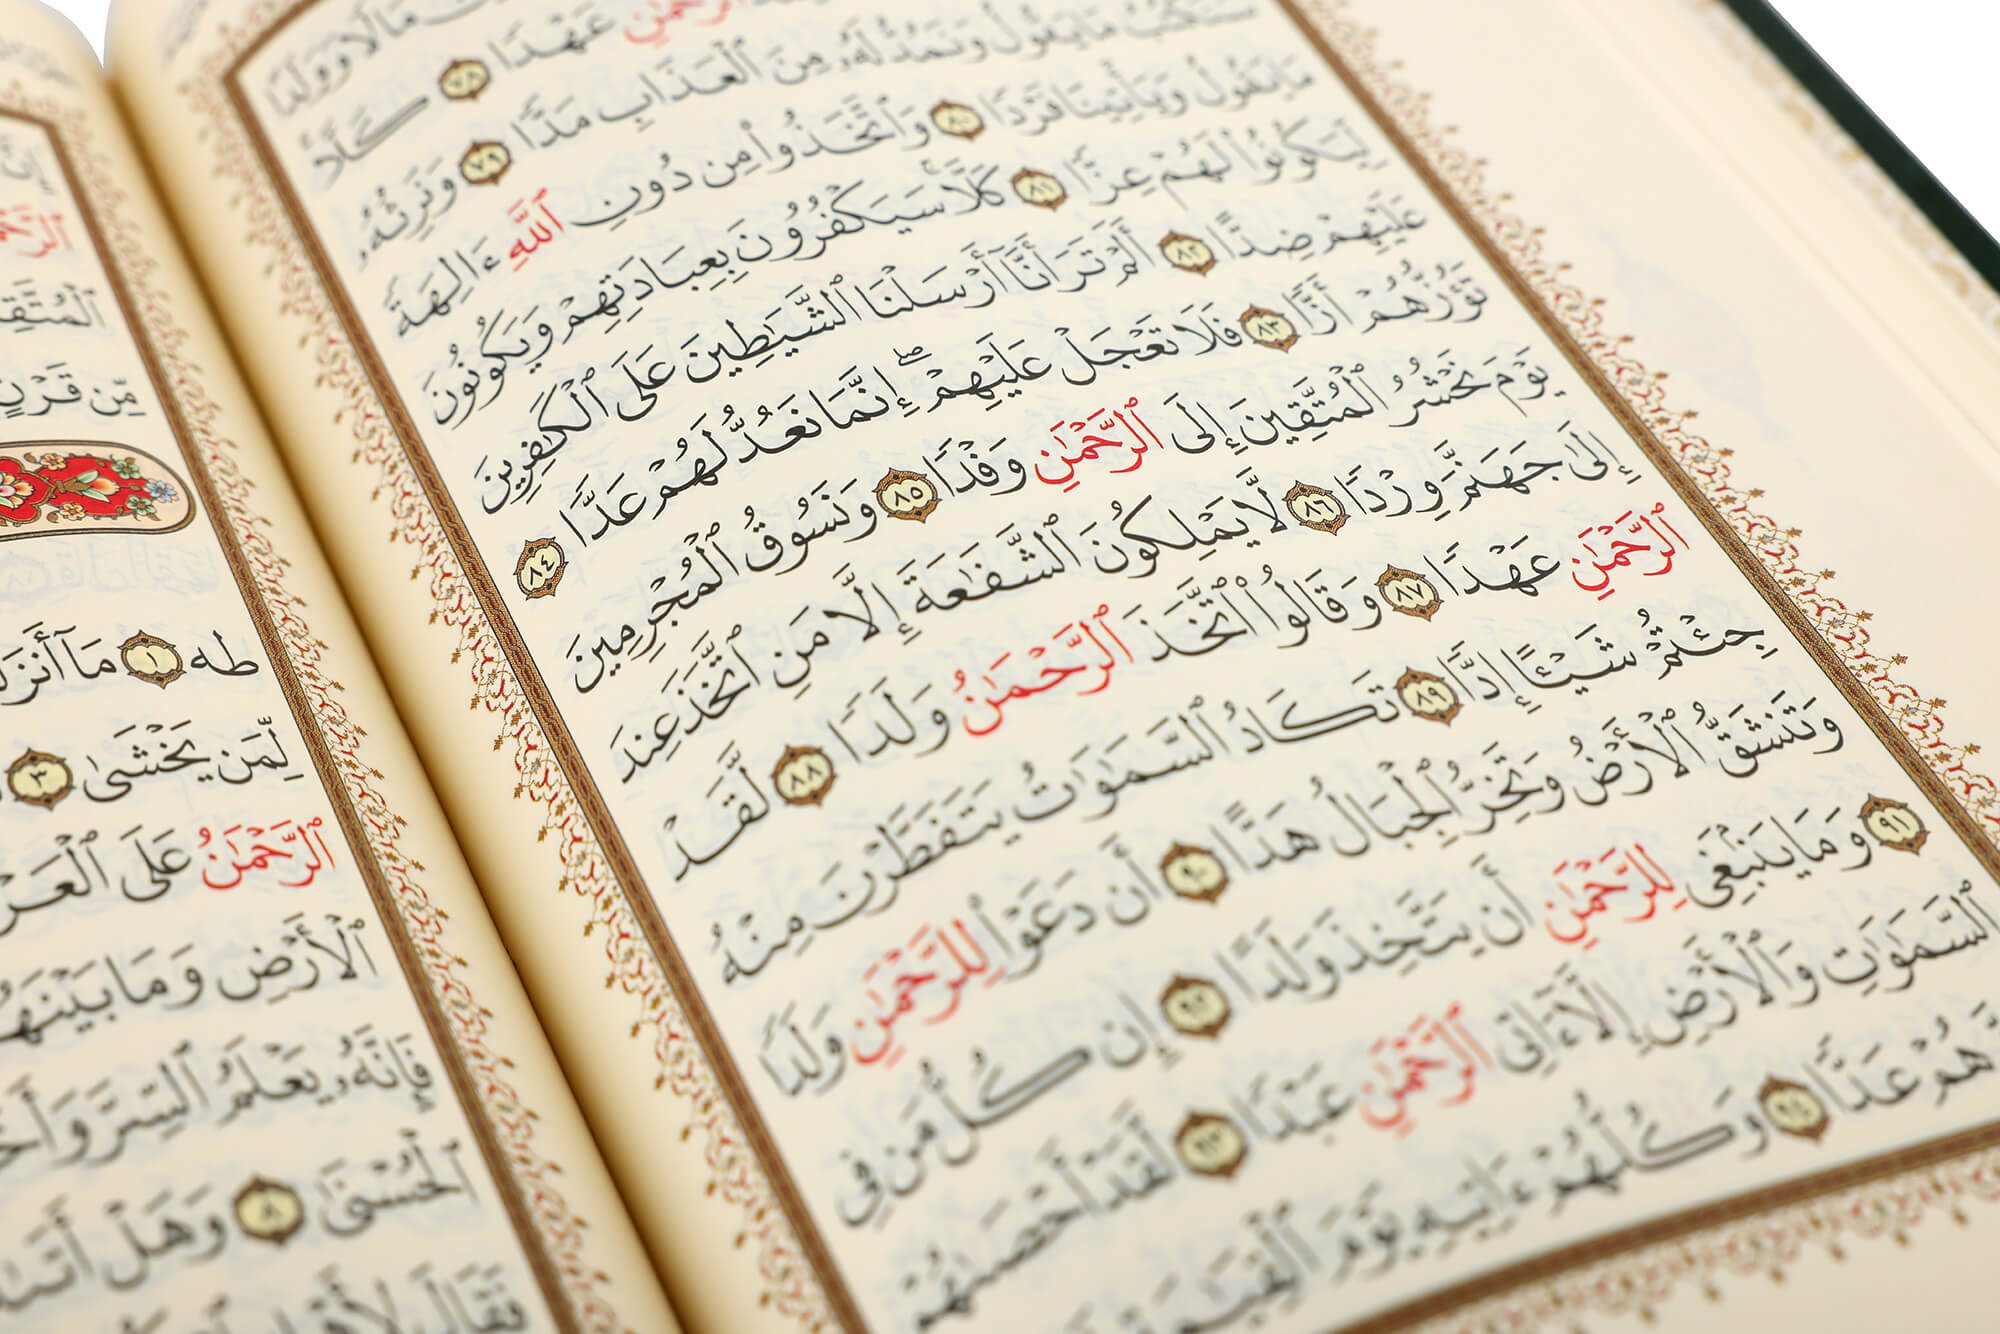 مَالًا وَوَلَدًا
ٱلرَّحْمَٰنِ عَهْدًا ٧٨ كَلَّا
سَنَكْتُبُ مَا يَقُولُ وَنَمُدُّ لَهُۥ مِنَ ٱلْعَذَابِ مَدًّا ٧٩ وَنَرِثُهُۥ
مَا يَقُولُ وَيَأْتِينَا فَرْدًا ٨٠ وَٱتَّخَذُوا۟ مِن دُونِ ٱللَّهِ ءَالِهَةً
لِّيَكُونُوا۟ لَهُمْ عِزًّا ٨١ كَلَّا ۚ سَيَكْفُرُونَ بِعِبَادَتِهِمْ وَيَكُونُونَ
عَلَيْهِمْ ضِدًّا ٨٢ أَلَمْ تَرَ أَنَّآ أَرْسَلْنَا ٱلشَّيَٰطِينَ عَلَى ٱلْكَٰفِرِينَ
تَؤُزُّهُمْ أَزًّا ٨٣ فَلَا تَعْجَلْ عَلَيْهِمْ ۖ إِنَّمَا نَعُدُّ لَهُمْ عَدًّا ٨٤
يَوْمَ نَحْشُرُ ٱلْمُتَّقِينَ إِلَى ٱلرَّحْمَٰنِ وَفْدًا ٨٥ وَنَسُوقُ ٱلْمُجْرِمِينَ
إِلَىٰ جَهَنَّمَ وِرْدًا ٨٦ لَّا يَمْلِكُونَ ٱلشَّفَٰعَةَ إِلَّا مَنِ ٱتَّخَذَ عِندَ
ٱلرَّحْمَٰنِ عَهْدًا ٨٧ وَقَالُوا۟ ٱتَّخَذَ ٱلرَّحْمَٰنُ وَلَدًا ٨٨ لَّقَدْ
جِئْتُمْ شَيْـًٔا إِدًّا ٨٩ تَكَادُ ٱلسَّمَٰوَٰتُ يَتَفَطَّرْنَ مِنْهُ
وَتَنشَقُّ ٱلْأَرْضُ وَتَخِرُّ ٱلْجِبَالُ هَدًّا ٩٠ أَن دَعَوْا۟ لِلرَّحْمَٰنِ وَلَدًا
٩١ وَمَا يَنۢبَغِى لِلرَّحْمَٰنِ أَن يَتَّخِذَ وَلَدًا ٩٢ إِن كُلُّ مَن فِى
ٱلسَّمَٰوَٰتِ وَٱلْأَرْضِ إِلَّآ ءَاتِى ٱلرَّحْمَٰنِ عَبْدًا ٩٣ لَّقَدْ أَحْصَىٰهُمْ
هُمْ عَدًّا ٩٤ وَكُلُّهُمْ ءَاتِيهِ يَوْمَ ٱلْقِيَٰمَةِ
إِنَّ
ٱلرَّحْمَٰ
ٱلْمُتَّقِ
مِّن قَرْنٍ
طه ١ مَآ أَنزَلْ
لِّمَن يَخْشَىٰ ٣
ٱلرَّحْمَٰنُ عَلَى ٱلْعَرْ
ٱلْأَرْضِ وَمَا بَيْنَهُ
فَإِنَّهُۥ يَعْلَمُ ٱلسِّرَّ وَأَخْ
ٱلْحُسْنَىٰ ٨ وَهَلْ أَتَىٰ
فَقَالَ لِأَهْ